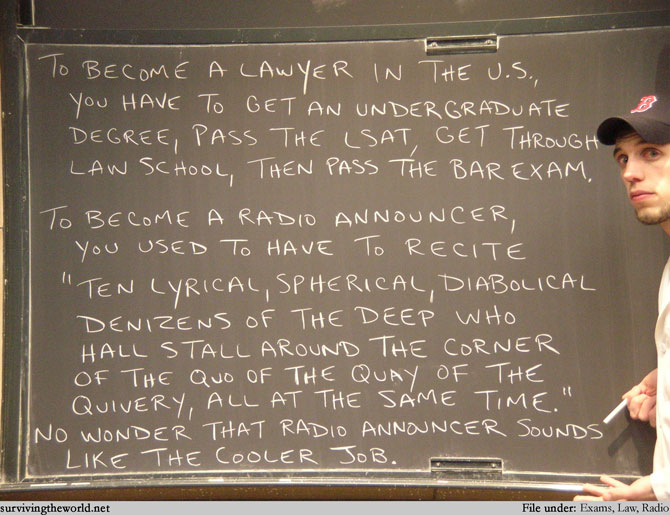 TO BECOME A LAWYER IN THE U.S.,
YOU HAVE TO GET AN UNDERGRADUATE
DEGREE, PASS THE LSAT, GET THROUGH
LAW SCHOOL, THEN PASS THE BAR EXAM.
TO BECOME A RADIO ANNOUNCER,
YOU USED TO HAVE TO RECITE
"TEN LYRICAL, SPHERICAL, DIABOLICAL
DENIZENS OF THE DEEP WHO
HALL STALL AROUND THE CORNER
OF THE QUO OF THE QUAY OF THE
QUIVERY, ALL AT THE SAME TIME."
NO WONDER THAT RADIO ANNOUNCER SOUNDS
LIKE THE COOLER JOB.
B
survivingtheworld.net
File under: Exams, Law, Radio